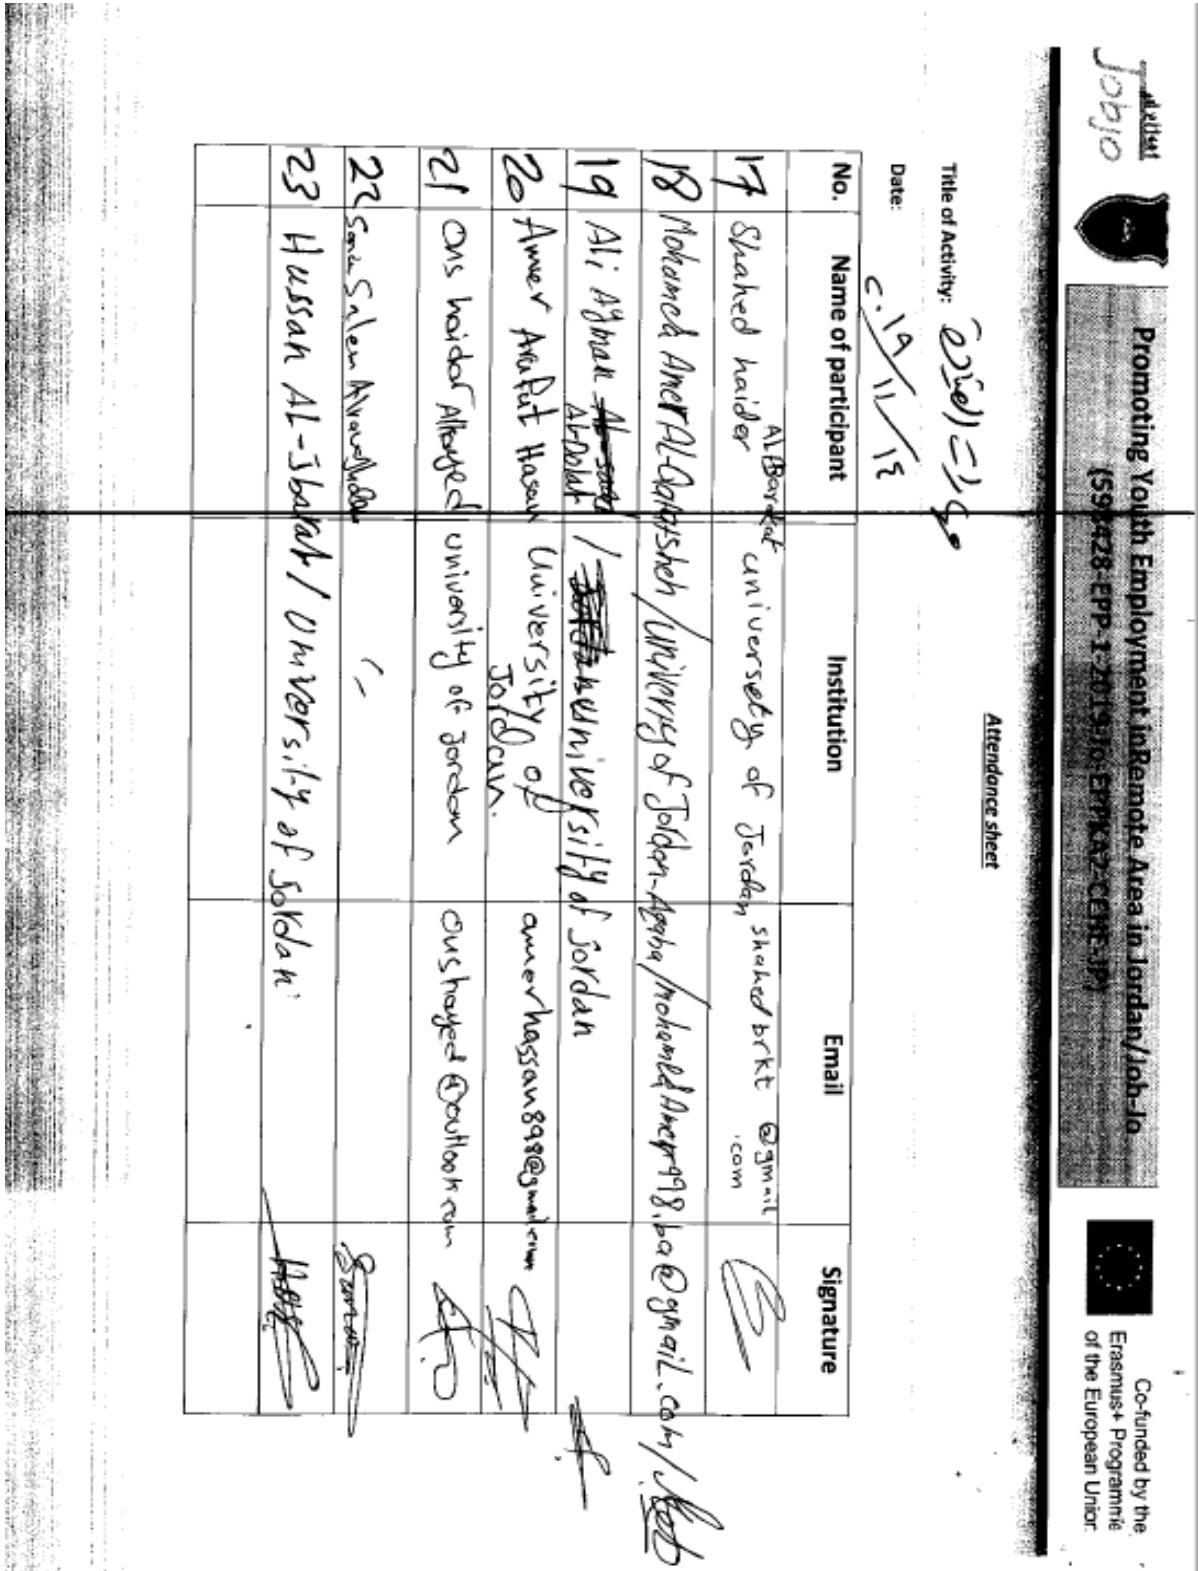 Jobjo
Promoting Youth Employment in Remote Area in Jordan/Job-Jo
(598428-EPP-1-2019-Jo-EPPKA2-CBHE-JP)
Co-funded by the
Erasmus+ Programme
of the European Union
Attendance sheet
Title of Activity:
Date: ٢٠١٩/١١/١٤
No. Name of participant Institution Email Signature
17 Shahed haider AL Barakat universety of Jordan shahedbrkt @gmail .com
18 Mohamed Amer AL-Qaratsheh / University of Jordan-Aqaba /
19 Ali Ayman Al-Dolat / university of Jordan
20 Amer Arafat Hasan University of Jordan. amerhassan898@gmail.com
21 Ons haidar Alhayed university of Jordan onshayed@outlook.com
22 Salem
23 Hussan AL-Jbarah / University of Jordan